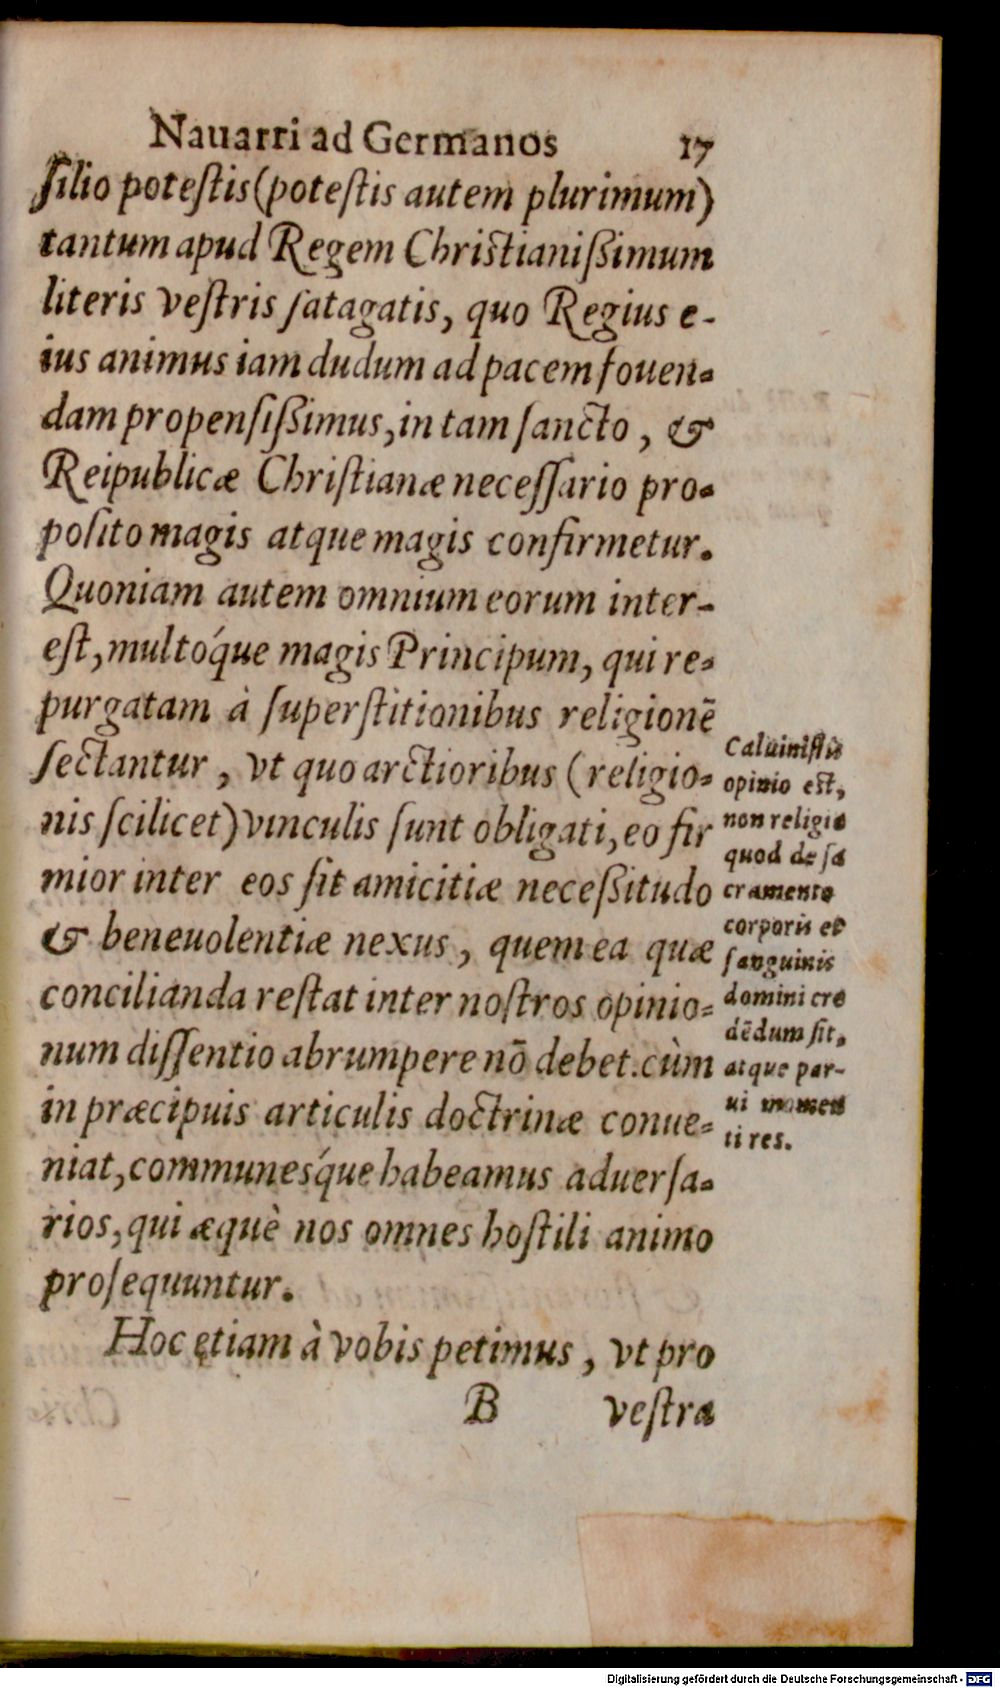 Nauarri ad Germanos 17
ſilio poteſtis (poteſtis autem plurimum)
tantum apud Regem Chriſtianiſsimum
literis veſtris ſatagatis, quo Regius e-
ius animus iam dudum ad pacem fouen-
dam propenſiſsimus, in tam ſancto, &
Reipublicæ Chriſtianæ neceſſario pro-
poſito magis atque magis confirmetur.
Quoniam autem omnium eorum inter-
eſt, multóque magis Principum, qui re-
purgatam à ſuperſtitionibus religionē
ſectantur, vt quo arctioribus (religio-
nis ſcilicet) vinculis ſunt obligati, eo fir
mior inter eos ſit amicitiæ neceſsitudo
& beneuolentiæ nexus, quem ea quæ
concilianda reſtat inter noſtros opinio-
num diſſentio abrumpere nō debet. cùm
in præcipuis articulis doctrinæ conue-
niat, communesq́ue habeamus aduerſa-
rios, qui æquè nos omnes hoſtili animo
proſequuntur.
Hoc etiam à vobis petimus, vt pro
B veſtra
Caluiniſtis
opinio eſt,
non religio
quod de ſa
cramento
corporis et
ſanguinis
domini cre
dēdum ſit,
atque par-
ui momen
ti res.
Digitalisierung gefördert durch die Deutsche Forschungsgemeinschaft - DFG